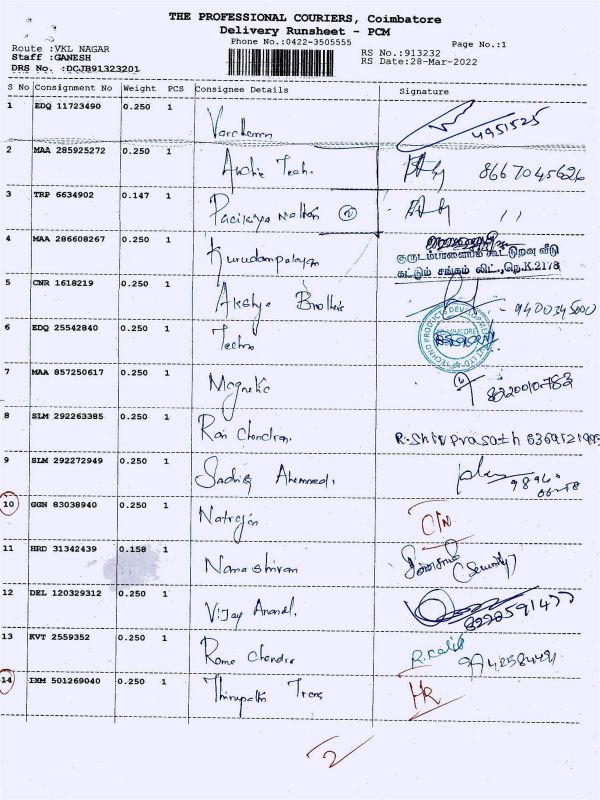 THE PROFESSIONAL COURIERS, Coimbatore
Delivery Runsheet - PCM
Phone No.:0422-3505555
Page No.:1
Route :VKL NAGAR
RS No.:913232
Staff :GANESH
RS Date:28-Mar-2022
DRS No. :DCJB91323201
S No Consignment No Weight PCS Consignee Details Signature
1 EDQ 11723490 0.250 1 4951525
2 MAA 285925272 0.250 1 Archie Tech. 8667045626
3 TRP 6634902 0.147 1 2 ,,
4 MAA 286608267 0.250 1 Kurudampalayam
குருடம்பாளையம் கூட்டுறவு வீடு
கட்டும் சங்கம் லிட்.,நெ.K.2178
5 CNR 1618219 0.250 1 Akshya Brothers 9400345000
6 EDQ 25542840 0.250 1 Techno
7 MAA 857250617 0.250 1 Magnetic
8 SLM 292263385 0.250 1 Ram Chandran. R.Shiv prasath
9 SLM 292272949 0.250 1
10 GGN 83038940 0.250 1 Natrajan
11 HRD 31342439 0.158 1 Namashivan (Security)
12 DEL 120329312 0.250 1 Vijay Anand. 8222591477
13 KVT 2559352 0.250 1 Rama Chandra
14 IXM 501269040 0.250 1 Thirupathi Trans
2